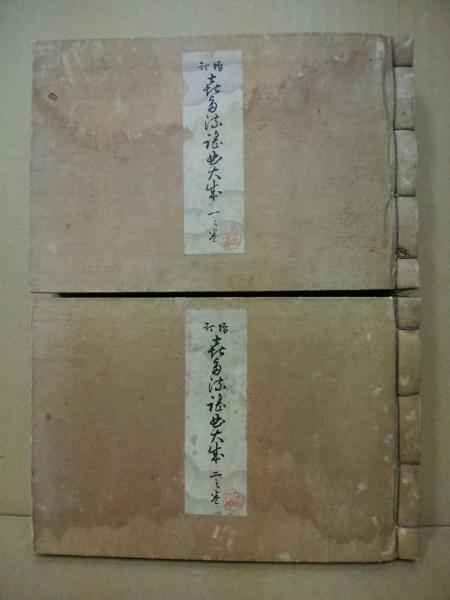 増訂
喜多流謡曲大成 一之巻
増訂
喜多流謡曲大成 二之巻